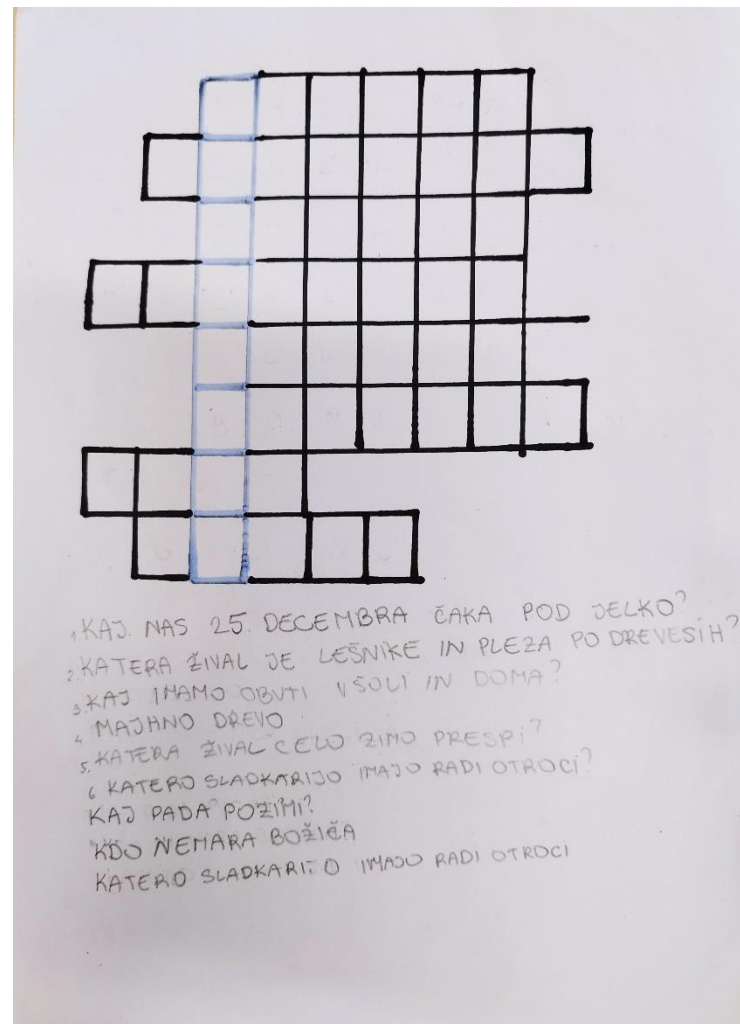 1. KAJ NAS 25. DECEMBRA ČAKA POD JELKO?
2. KATERA ŽIVAL JE LEŠNIKE IN PLEZA PO DREVESIH?
3. KAJ IMAMO OBUTI V ŠOLI IN DOMA?
4. MAJHNO DREVO
5. KATERA ŽIVAL CELO ZIMO PRESPI?
6 KATERO SLADKARIJO IMAJO RADI OTROCI?
KAJ PADA POZIMI?
KDO NEMARA BOŽIČA
KATERO SLADKARIJO IMAJO RADI OTROCI